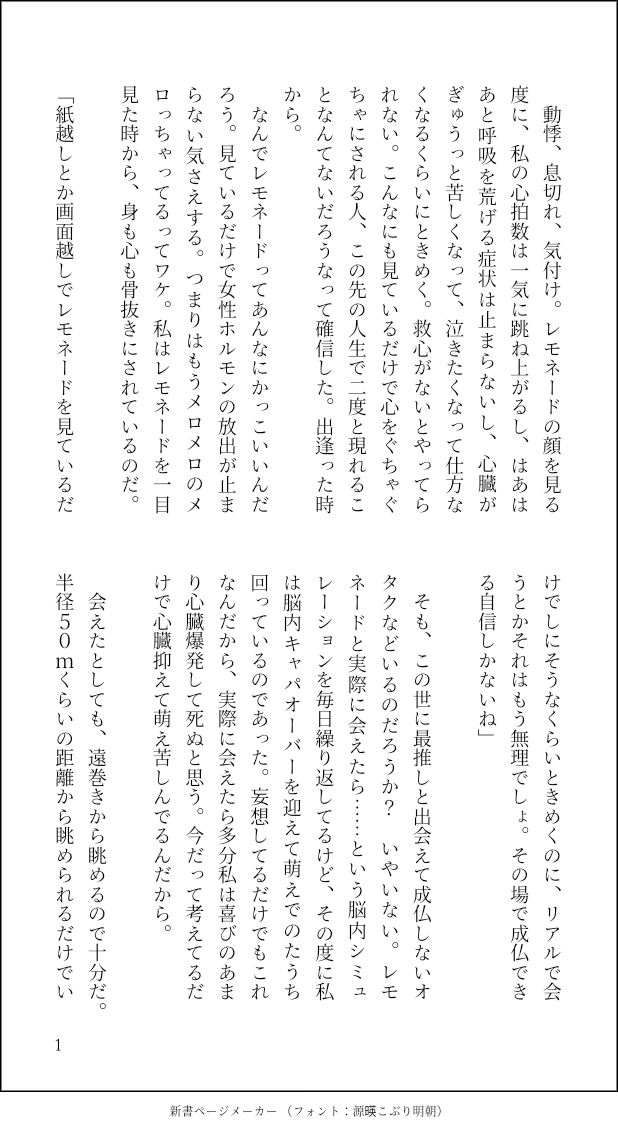 動悸、息切れ、気付け。レモネードの顔を見る
度に、私の心拍数は一気に跳ね上がるし、はあは
あと呼吸を荒げる症状は止まらないし、心臓が
ぎゅうっと苦しくなって、泣きたくなって仕方な
くなるくらいにときめく。救心がないとやってら
れない。こんなにも見ているだけで心をぐちゃぐ
ちゃにされる人、この先の人生で二度と現れるこ
となんてないだろうなって確信した。出逢った時
から。
なんでレモネードってあんなにかっこいいんだ
ろう。見ているだけで女性ホルモンの放出が止ま
らない気さえする。つまりはもうメロメロのメ
ロっちゃってるってワケ。私はレモネードを一目
見た時から、身も心も骨抜きにされているのだ。
「紙越しとか画面越しでレモネードを見ているだ
けでしにそうなくらいときめくのに、リアルで会
うとかそれはもう無理でしょ。その場で成仏でき
る自信しかないね」
そも、この世に最推しと出会えて成仏しないオ
タクなどいるのだろうか？　いやいない。レモ
ネードと実際に会えたら……という脳内シミュ
レーションを毎日繰り返してるけど、その度に私
は脳内キャパオーバーを迎えて萌えでのたうち
回っているのであった。妄想してるだけでもこれ
なんだから、実際に会えたら多分私は喜びのあま
り心臓爆発して死ぬと思う。今だって考えてるだ
けで心臓抑えて萌え苦しんでるんだから。
会えたとしても、遠巻きから眺めるので十分だ。
半径５０ｍくらいの距離から眺められるだけでい
1
新書ページメーカー（フォント：源暎こぶり明朝）